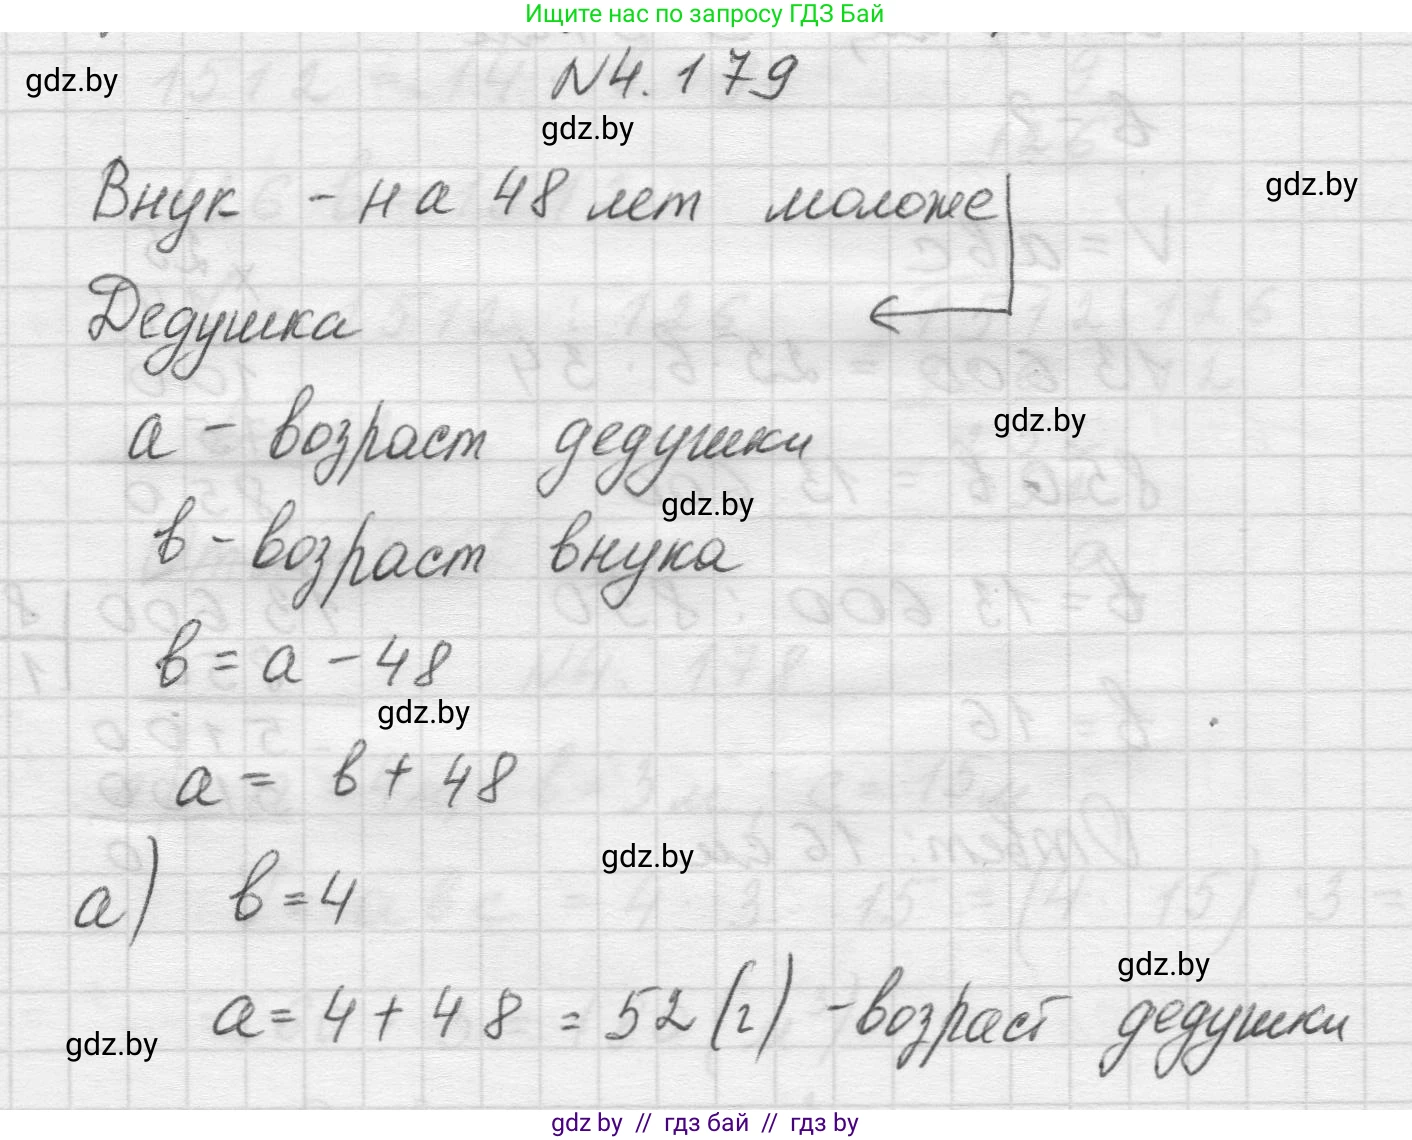 Ищите нас по запросу ГДЗ Бай
gdz.by
N4.179
gdz.by
Внук - на 48 лет моложе
gdz.by
Дедушка
а - возраст дедушки
gdz.by
gdz.by
в - возраст внука
в = а - 48
gdz.by
а = в + 48
gdz.by
а) в = 4
gdz.by
а = 4 + 48 = 52 (г) - возраст дедушки
gdz.by
gdz by // гдз бай // гдз by